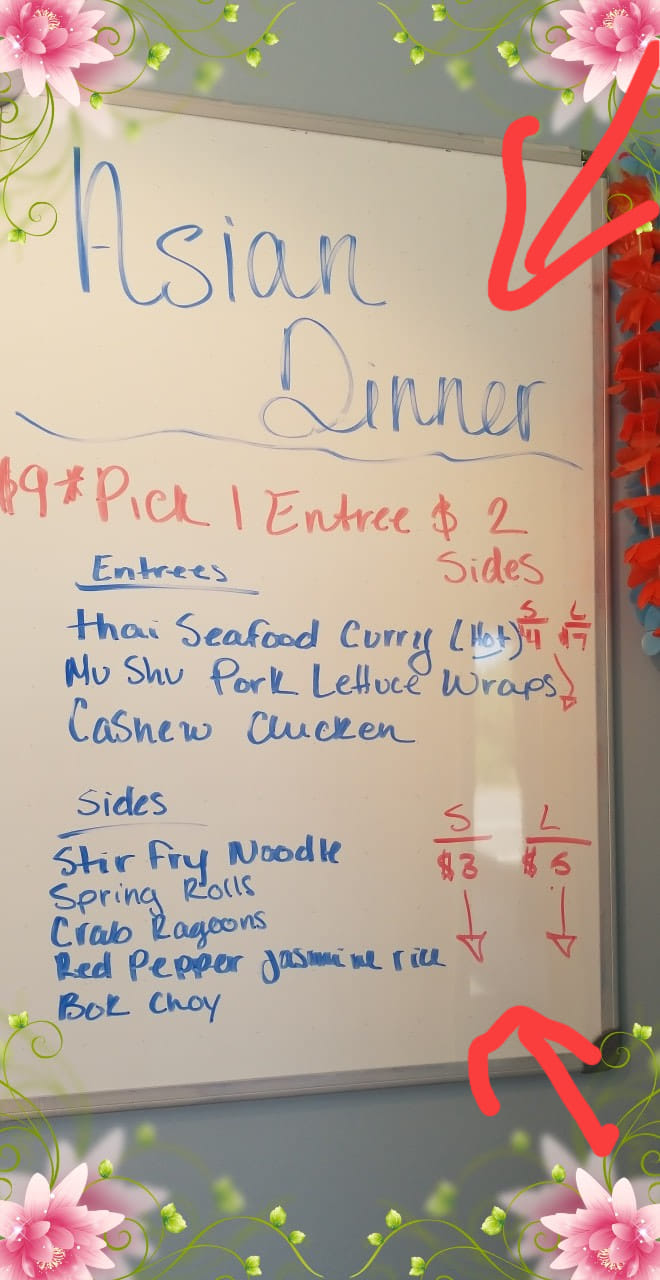 Asian
Dinner
$9* Pick 1 Entree $ 2
Sides
Entrees
S L
Thai Seafood Curry (Hot) $4 $7
Mu Shu Pork Lettuce Wraps
Cashew Chicken
Sides
S L
$3 $5
Stir Fry Noodle
Spring Rolls
Crab Ragoons
Red Pepper Jasmine rice
Bok Choy